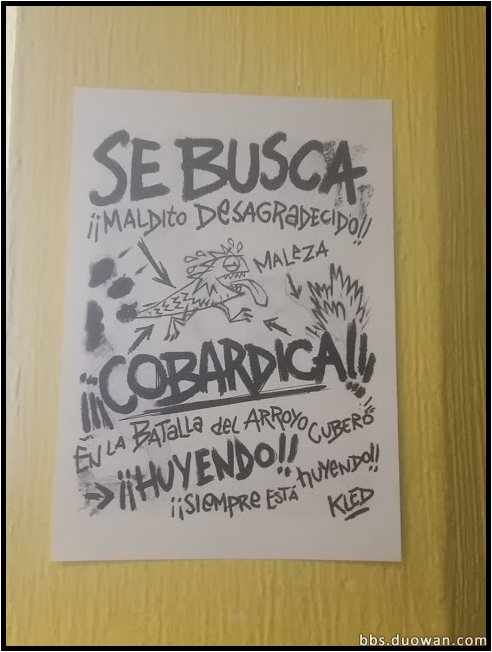 SE BUSCA
¡¡MALDITO DESAGRADECIDO!!
MALEZA
¡¡¡COBARDICA!!!
EN LA BATALLA del ARROYO CUBERO
¡¡HUYENDO!!
¡¡SIEMPRE ESTÁ huyENDO!!
KLED
bbs.duowan.com